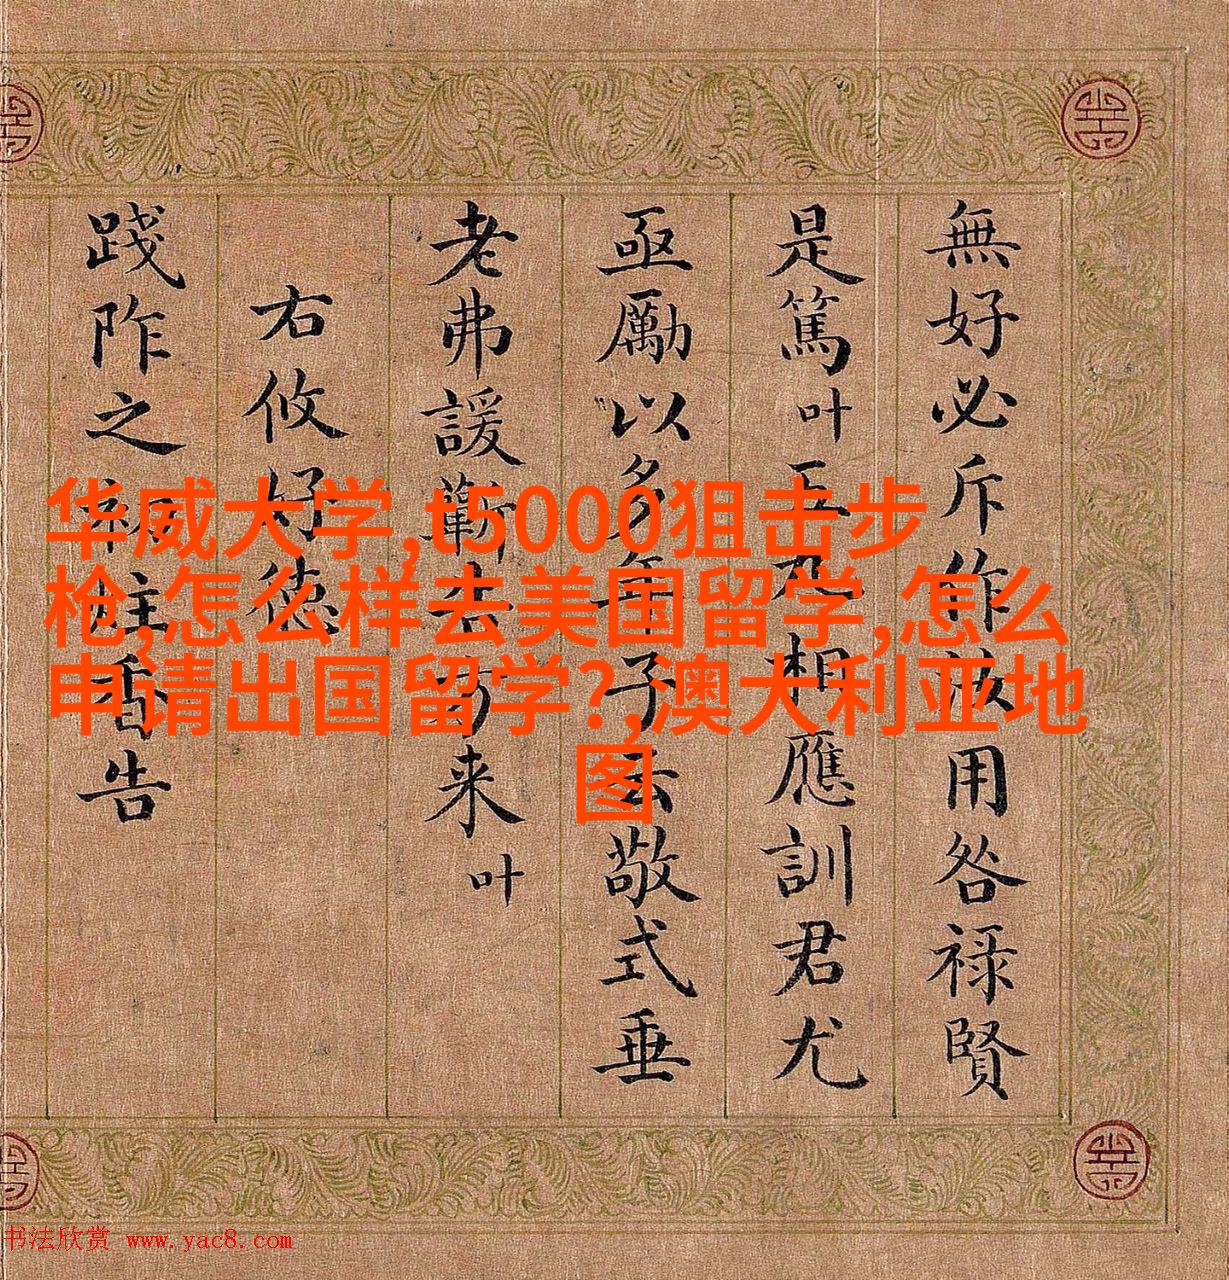 無好必斥作汝用咎禄賢
是篤叶五乃相應訓君尤
亟勵以多年子敬式垂
老弗諼告方来叶
右攸好德
踐阼之初炷香告
华威大学,t5000狙击步
枪,怎么样去美国留学,怎么
申请出国留学?,澳大利亚地
图
书法欣赏 www.yac8.com